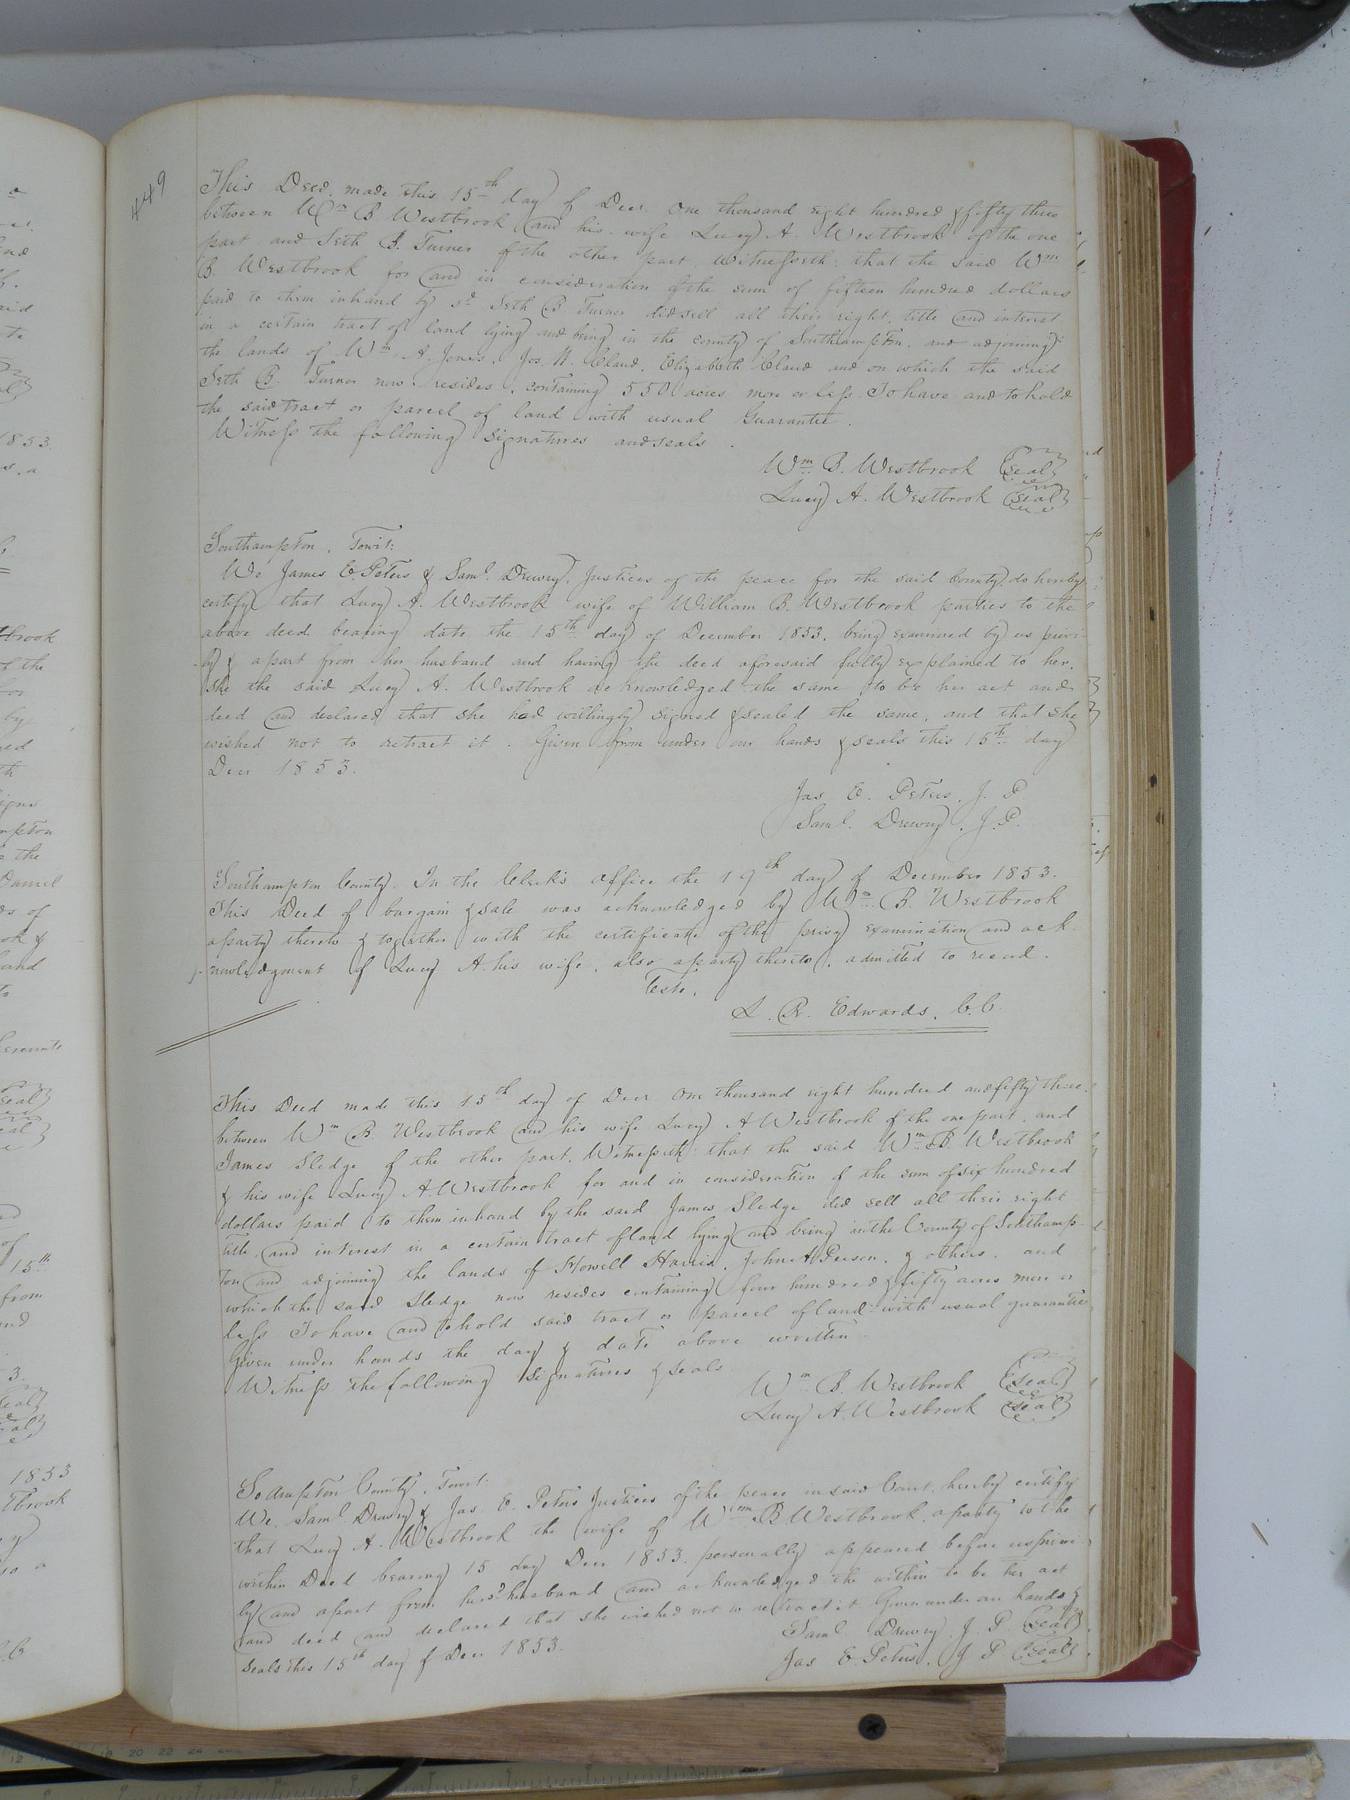 449
This Deed made this 15th day of Decr One thousand eight hundred & fifty three
between Wm B Westbrook and his wife Lucy A. Westbrook of the one
part and Seth B. Turner of the other part, witnesseth: that the said Wm
B. Westbrook for and in consideration of the sum of fifteen hundred dollars
paid to them inhand by sd Seth B Turner did sell all their right, title and interest
in a certain tract of land lying and being in the county of Southampton, and adjoining
the lands of Wm A. Jones, Jos. N. Claud, Elizabeth Claud and on which the said
Seth B. Turner now resides, containing 550 acres more or less To have and to hold
the said tract or parcel of land with usual Guarantee.
Witness the following signatures and seals.
Wm B. Westbrook (seal)
Lucy A. Westbrook (seal)
Southampton, Towit:
We James E Peters & Saml. Drewry, Justices of the peace for the said County, do hereby
certify that Lucy A. Westbrook wife of William B. Westbrook parties to the
above deed bearing date the 15th day of December 1853, being examined by us privi-
ly & apart from her husband and having the deed aforesaid fully explained to her,
she the said Lucy A. Westbrook acknowledged the same to be her act and
deed and declared that she had willingly signed & sealed the same, and that she
wished not to retract it. Given from under our hands & seals this 15th day
Decr 1853.
Jas E. Peters, J. P
Saml. Drewry, J.P.
Southampton County. In the Clerk's office the 19th day of December 1853.
This Deed of bargain & sale was acknowledged by Wm B. Westbrook
a party thereto & together with the certificate of the privy examination and ack-
nowledgment of Lucy A. his wife, also a party thereto, admitted to record.
Teste,
L. R. Edwards, C.C.
This Deed made this 15th day of Decr One thousand eight hundred and fifty three
between Wm B. Westbrook and his wife Lucy A Westbrook of the one part, and
James Sledge of the other part. Witnesseth: that the said Wm B. Westbrook
& his wife Lucy A. Westbrook for and in consideration of the sum of six hundred
dollars paid to them inhand by the said James Sledge did sell all their right
title, and interest in a certain tract of land lying and being in the County of Southamp-
ton and adjoining the lands of Howell Harris, John A Person, & others, and
which the said Sledge now resides containing four hundred & fifty acres more or
less To have and to hold said tract or parcel of land with usual guarantee
Given under hands the day & date above written
Witness the following signatures & seals
Wm B. Westbrook (seal)
Lucy A. Westbrook (seal)
So ampton County, Towit:
We, Saml Drewry & Jas E. Peters Justices of the peace in said Count, hereby certify
that Lucy A. Westbrook the wife of Wm B Westbrook, a party to the
within Deed bearing 15 day Decr 1853. personally appeared before us privi-
ly and apart from husband and acknowledged the within to be her act
and deed and declared that she wished not to retract it Given under our hands &
seals this 15th day of Decr 1853.
Saml Drewry. J. P. (seal)
Jas E. Peters. J P (seal)